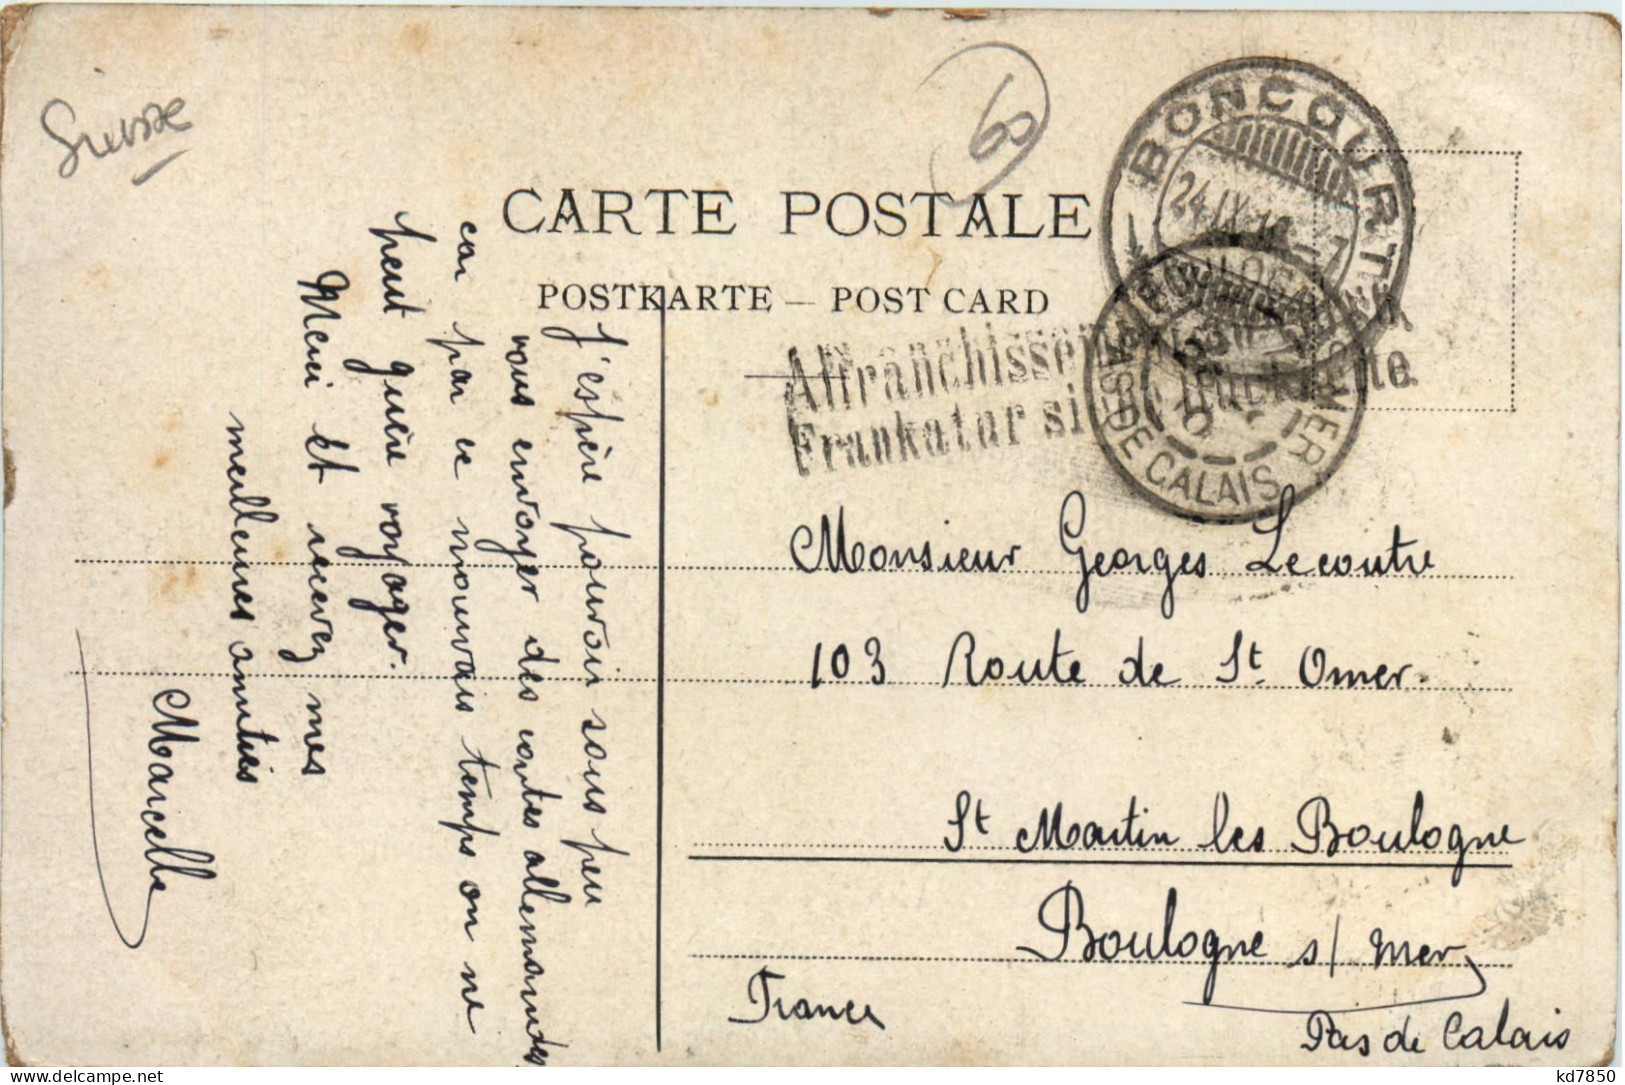 Suisse
69
CARTE POSTALE
POSTKARTE — POST CARD
BONCOURT
24.IX.10
BOULOGNE SUR MER
PAS DE CALAIS
Affranchissement
Frankatur siehe Rückseite.
J'espère pouvoir sous peu
vous envoyer des cartes allemandes
car par ce mauvais temps on ne
peut guère voyager.
Merci et recevez mes
meilleures amitiés
Marcelle
Monsieur Georges Lecoutre
103 Route de St. Omer.
St Martin les Boulogne
Boulogne s/ mer
France
Pas de Calais
kd7850